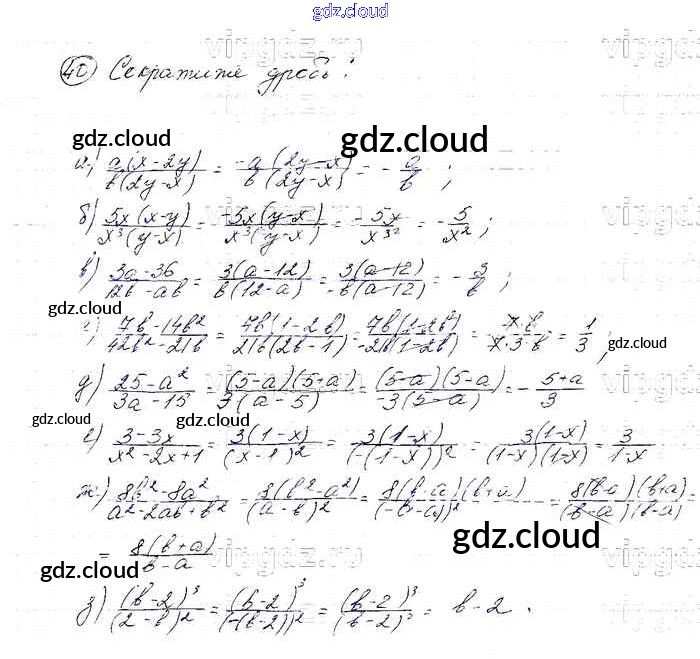 gdz.cloud
40 Сократите дробь:
gdz.cloud gdz.cloud
а) a(x-2y)/b(2y-x) = -a(2y-x)/b(2y-x) = -a/b ;
б) 5x(x-y)/x³(y-x) = -5x(y-x)/x³(y-x) = -5x/x³² = -5/x² ;
в) 3a-36/12b-ab = 3(a-12)/b(12-a) = 3(a-12)/-b(a-12) = -3/b ;
gdz.cloud
г) 7b-14b²/42b²-21b = 7b(1-2b)/21b(2b-1) = 7b(1-2b)/-21b(1-2b) = 7·b/7·3·b = 1/3 ;
gdz.cloud gdz.cloud
д) 25-a²/3a-15 = (5-a)(5+a)/3(a-5) = (5-a)(5-a)/-3(5-a) = -5+a/3
gdz.cloud gdz.cloud
е) 3-3x/x²-2x+1 = 3(1-x)/(x-1)² = 3(1-x)/(-(1-x))² = 3(1-x)/(1-x)(1-x) = 3/1-x
ж) 8b²-8a²/a²-2ab+b² = 8(b²-a²)/(a-b)² = 8(b-a)(b+a)/(-(b-a))² = 8(b-a)(b+a)/(b-a)(b-a)
= 8(b+a)/b-a
gdz.cloud gdz.cloud
з) (b-2)³/(2-b)² = (b-2)³/(-(b-2))² = (b-2)³/(b-2)² = b-2.